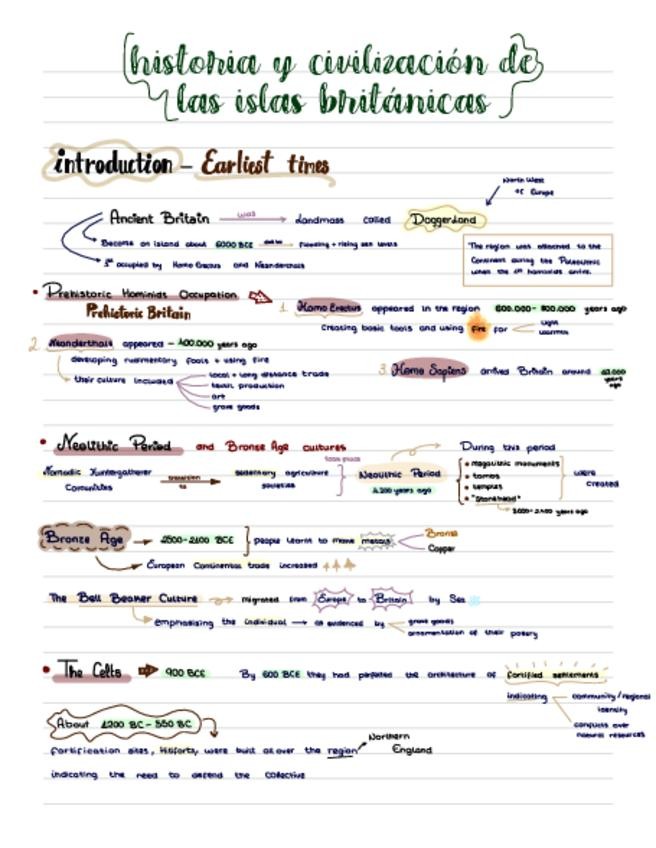 historia y civilización de
las islas británicas
introduction – Earliest times
North West
of Europe
Ancient Britain was landmass called Doggerland
Become an island about 6000 BCE flooding + rising sea levels
1st occupied by Homo Erectus and Neanderthals
The region was attached to the
Continent during the Paleolithic
when the 1st hominids arrive.
• Prehistoric Hominids Occupation
Prehistoric Britain
1. Homo Erectus appeared in the region 600.000 - 800.000 years ago
Creating basic tools and using fire for
light
warmth
2. Neanderthals appeared – 400.000 years ago
developing rudimentary tools + using fire
their culture included
local + long distance trade
textil production
art
grave goods
3. Homo Sapiens arrived Britain around
years
ago
• Neolithic Period and Bronze Age cultures
Nomadic Huntergatherer
Comunities
transition
to
sedentary agriculture
societies
took place
Neolithic Period
4.200 years ago
During this period
• megalithic monuments
• tombs
• temples
were
created
Bronze Age → 2500-2100 BCE people learnt to make metals
Bronze
Copper
European Continental trade increased
The Bell Beaker Culture migrated from Europe to Britain by Sea
emphasising the individual → as evidenced by
grave goods
ornamentation of their potery
• The Celts 900 BCE By 600 BCE they had perfected the architecture of fortified settlements
indicating
community/regional
identity
conflicts over
natural resources
About 1200 BC - 550 BC
fortification sites, Hillforts, were built all over the region
Northern
England
indicating the need to defend the collective